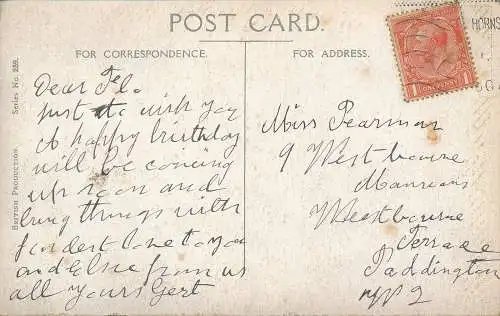 POST CARD.
FOR CORRESPONDENCE.
FOR ADDRESS.
BRITISH PRODUCTION. Series No. 259.
Dear Flo
Just to wish you
A happy birthday
will be coming
up soon and
bring things with
fondest love to you
and Elsie from us
all yours Gert
Miss Pearman
9 Westbourne
Mansions
Westbourne
Terrace
Paddington
2
HORNS
ONE PENNY
1 1